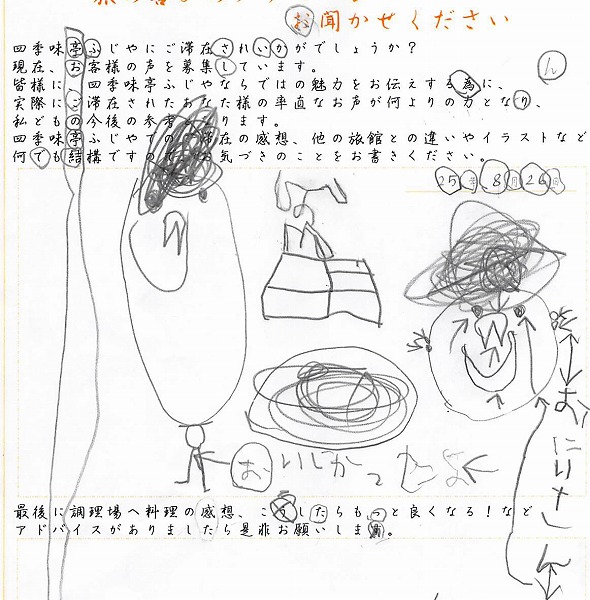 お聞かせください
四季味亭ふじやにご滞在されいかがでしょうか？
現在、お客様の声を募集しています。
皆様に、四季味亭ふじやならではの魅力をお伝えする為に、
実際にご滞在されたあなた様の率直なお声が何よりの力となり、
私どもの今後の参考となります。
四季味亭ふじやでのご滞在の感想、他の旅館との違いやイラストなど
何でも結構ですのでお気づきのことをお書きください。
ん
25年8月26日
おいしかったよ
おにいさん
最後に調理場へ料理の感想、こうしたらもっと良くなる！など
アドバイスがありましたら是非お願いします。